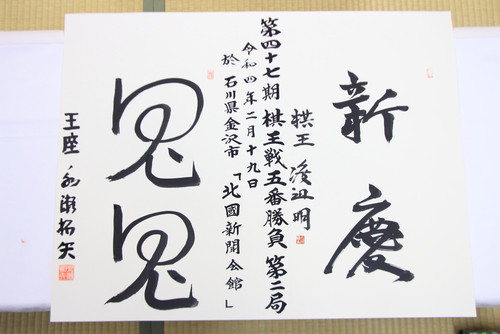 新慶
棋王 渡辺明
第四十七期 棋王戦五番勝負 第二局
令和四年二月十九日
於 石川県金沢市 「北國新聞会館」
鬼鬼
王座 永瀬拓矢